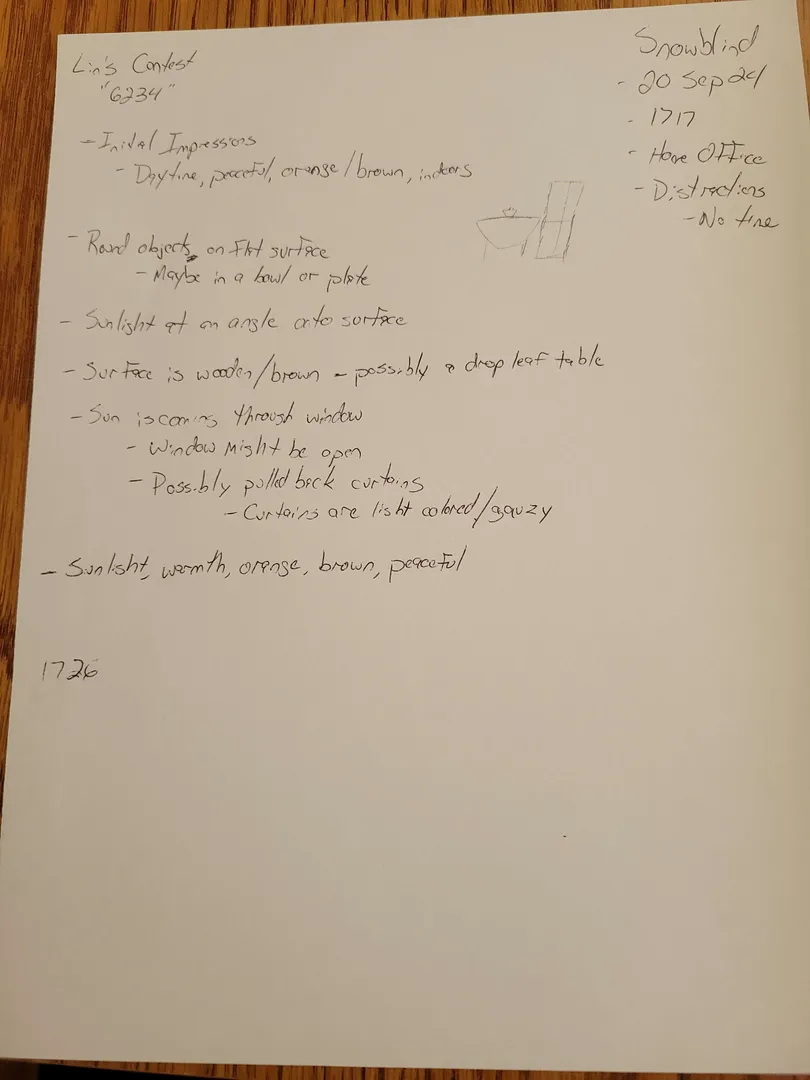 Lin's Contest
"6234"
Snowblind
- 20 Sep 24
- 1717
- Home Office
- Distractions
- No time
- Inital Impressions
- Daytime, peaceful, orange/brown, indoors
- Round objects on flat surface
- Maybe in a bowl or plate
- Sunlight at an angle onto surface
- Surface is wooden/brown - possibly a drop leaf table
- Sun is coming through window
- Window might be open
- Possibly pulled back curtains
- Curtains are light colored/gauzy
- Sunlight, warmth, orange, brown, peaceful
1726